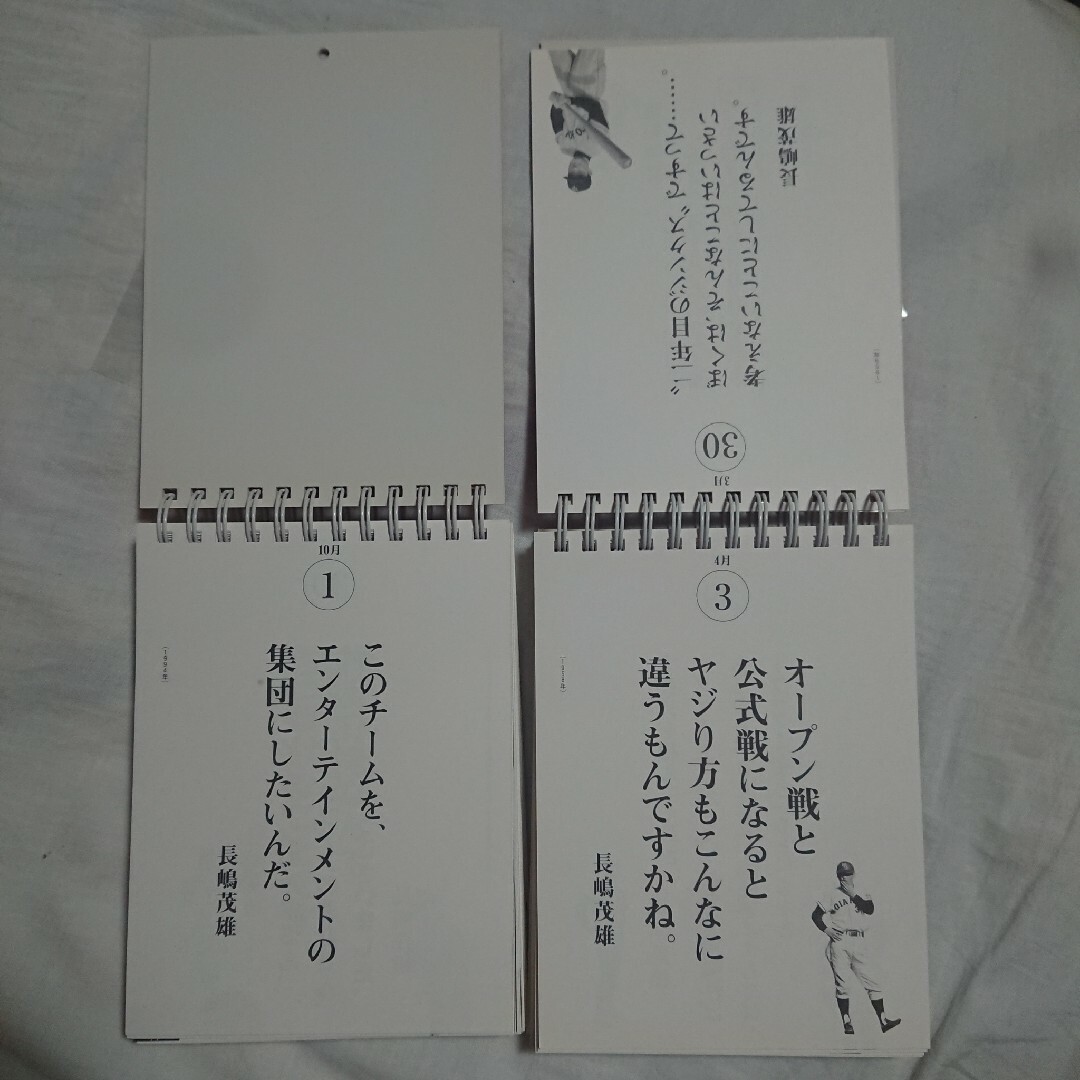 10月
1
このチームを、
エンターテインメントの
集団にしたいんだ。
長嶋茂雄
3月
30
“二年目のジンクス”ですって……。
ぼくは、そんなことはいっさい
考えないことにしてるんです。
長嶋茂雄
4月
3
オープン戦と
公式戦になると
ヤジり方もこんなに
違うもんですかね。
長嶋茂雄